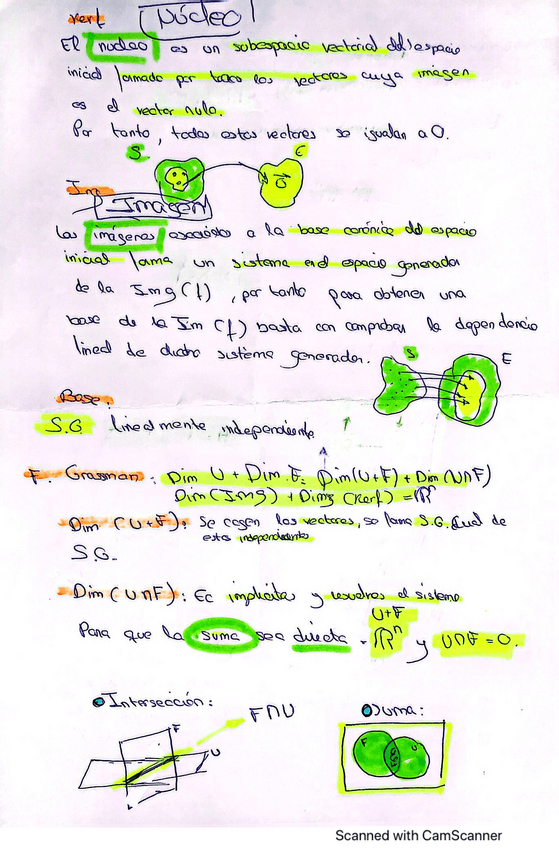 Kerf Núcleo
El nucleo es un subespacio vectorial del espacio
inicial formado por todos los vectores cuya imagen
es el vector nulo.
Por tanto, todos estos vectores se igualan a 0.
S E
0
Img
Imagen
Las imágenes asociadas a la base canónica del espacio
inicial forma un sistema en el espacio generador
de la Img(f), por tanto para obtener una
base de la Im(f) basta con comprobar la dependencia
lineal de dicho sistema generador.
S E
Base.
S.G linealmente independiente
F. Grassman: Dim U + Dim. F = Dim(U+F) + Dim(U∩F)
Dim(Img) + Dimg(Kerf) = ℝ
Dim (U+F): Se cogen los vectores, se forma S.G, cual de
estos independiente
S.G.
Dim(U∩F): Ec implícita y resuelves el sistema
U+F
Para que la suma sea directa = ℝⁿ y U∩F = 0.
Intersección: F∩U
Suma:
F
U
F U
Scanned with CamScanner